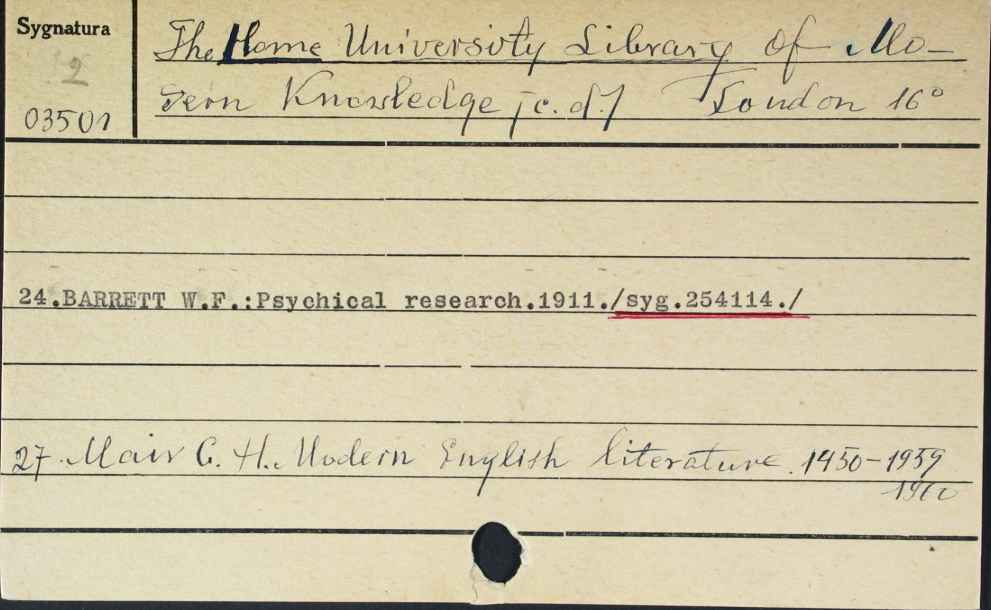 Sygnatura
2
03501
The Home University Library of Mo-
dern Knowledge /c.d./ London 16°
24.BARRETT W.F.:Psychical research.1911./syg.254114./
27. Mair G. H. Modern English literature. 1450-1959
1960